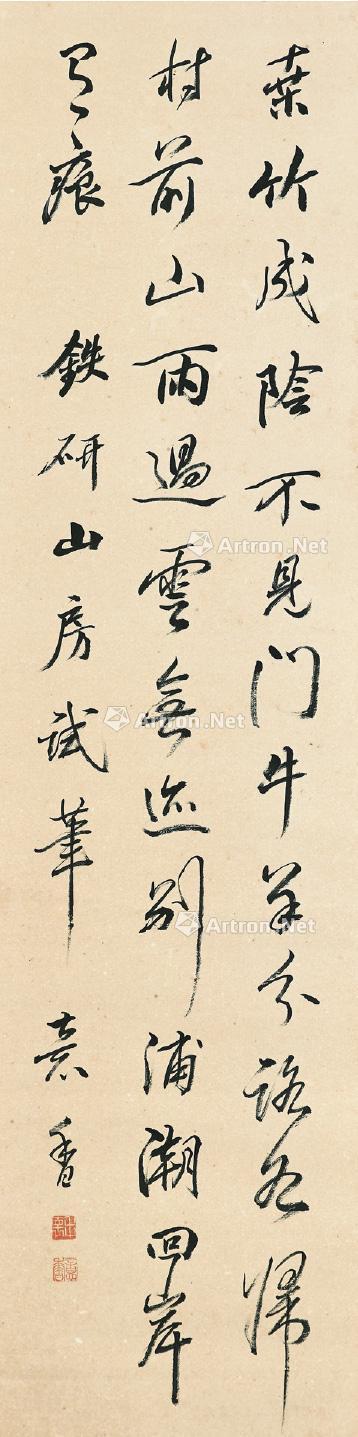 桑竹成陰不見門牛羊分路各歸
村前山雨過雲無迹別浦潮回岸
有痕 鉄研山房試筆 意香
Artron.Net
Artron.Net
Artron.Net